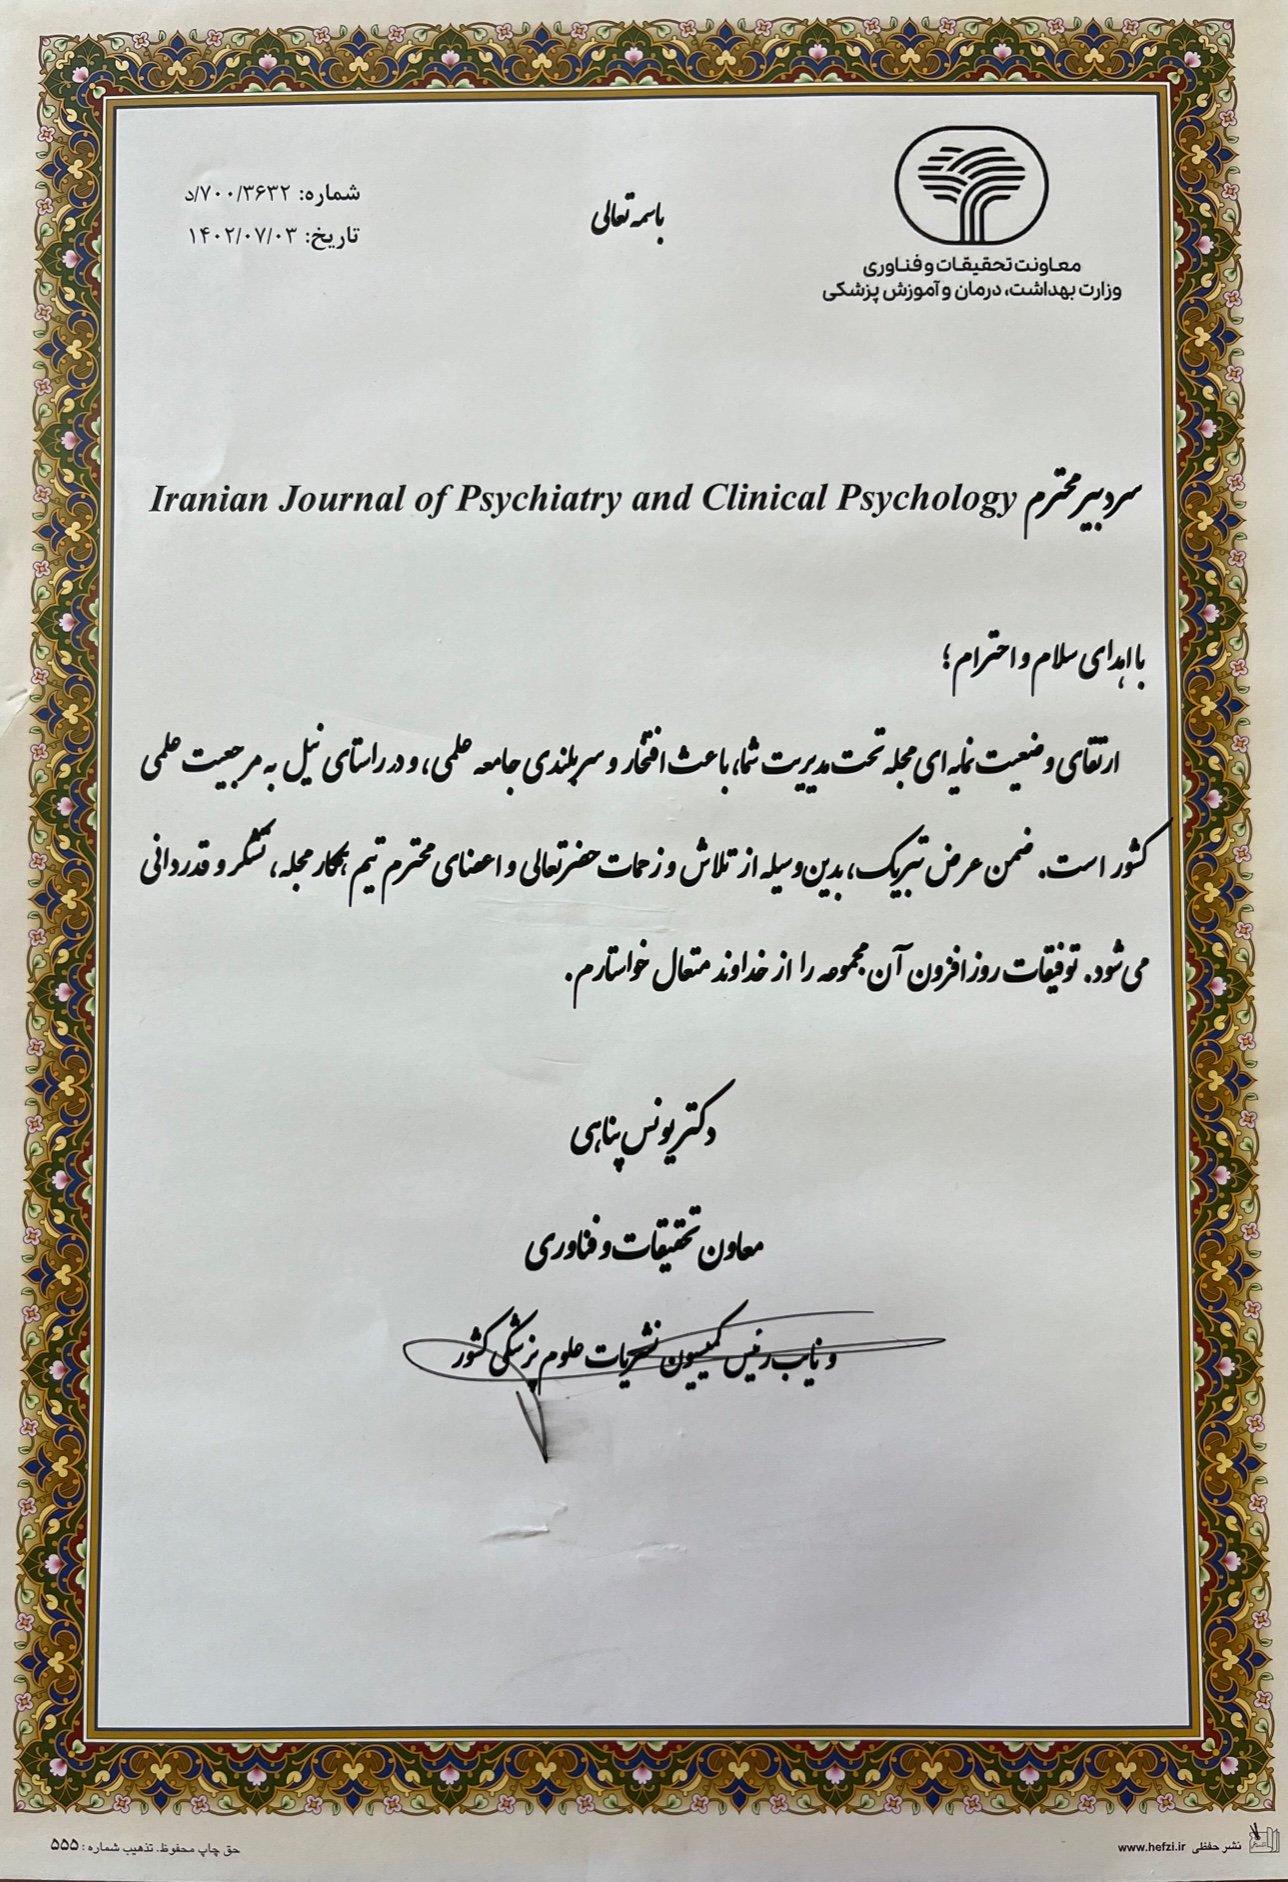 باسمه تعالی
شماره: ۷۰۰/۳۶۳۲/د
تاریخ: ۱۴۰۲/۰۷/۰۳
معاونت تحقیقات و فناوری
وزارت بهداشت، درمان و آموزش پزشکی
سردبیر محترم Iranian Journal of Psychiatry and Clinical Psychology
با اهدای سلام و احترام؛
ارتقای وضعیت نمایه ای مجله تحت مدیریت شما، باعث افتخار و سربلندی جامعه علمی، و در راستای نیل به مرجعیت علمی
کشور است. ضمن عرض تبریک، بدین وسیله از تلاش و زحمات حضرتعالی و اعضای محترم تیم همکار مجله، تشکر و قدردانی
می شود. توفیقات روز افزون آن مجموعه را از خداوند متعال خواستارم.
دکتر یونس پناهی
معاون تحقیقات و فناوری
و نایب رئیس کمیسیون نشریات علوم پزشکی کشور
نشر حفظی www.hefzi.ir
حق چاپ محفوظ. تذهیب شماره: ۵۵۵